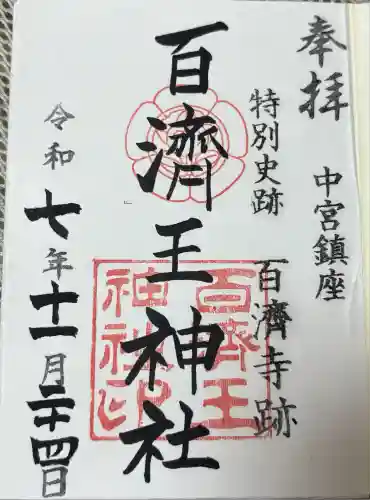 奉拝
中宮鎮座
特別史跡 百濟寺跡
百濟王神社
百濟王
神社印
令和七年十一月二十四日